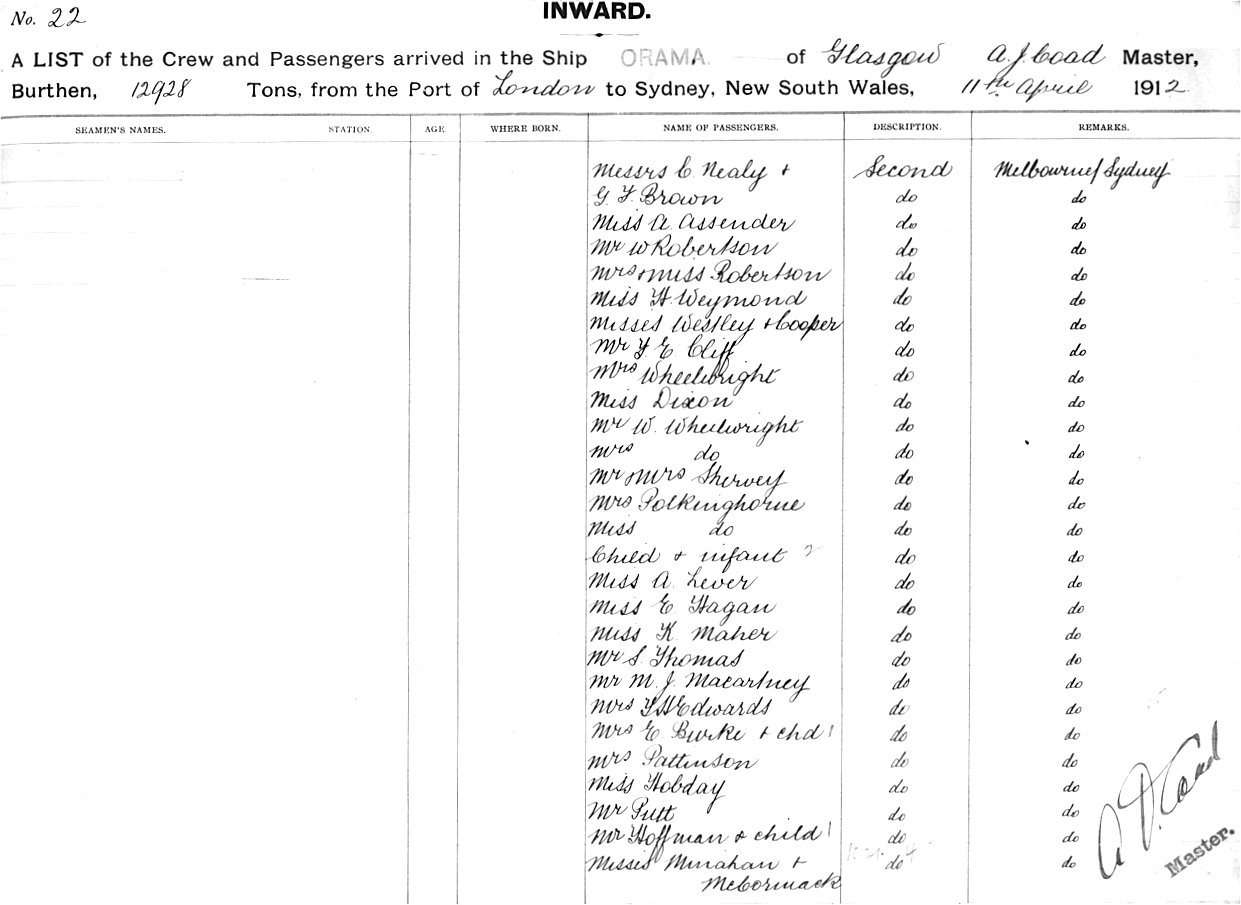 No. 22
INWARD.
A LIST of the Crew and Passengers arrived in the Ship ORAMA. of Glasgow A. J. Coad Master,
Burthen, 12928 Tons, from the Port of London to Sydney, New South Wales, 11th April 1912.
SEAMEN'S NAMES. STATION. AGE. WHERE BORN. NAME OF PASSENGERS. DESCRIPTION. REMARKS.
Messrs C. Nealy + Second Melbourne/Sydney
G. F. Brown do do
Miss A. Assender do do
Mr W Robertson do do
Mrs + Miss Robertson do do
Miss H Weymond do do
Misses Westley + Cooper do do
Mr F. E. Cliff do do
Mrs Wheelwright do do
Miss Dixon do do
Mr W. Wheelwright do do
Mrs do do do
Mr + Mrs Shervey do do
Mrs Polkinghorne do do
Miss do do do
Child + infant 2 do do
Miss A. Lever do do
Miss E. Hagan do do
Miss K. Maher do do
Mr S. Thomas do do
Mr M. J. Macartney do do
Mrs F H Edwards do do
Mrs E. Burke + chd 1 do do
Mrs Pattinson do do
Miss Hobday do do
Mr Putt do do
Mr Hoffman + child 1 do do
Misses Minahan + do do
McCormack
Coad
Master.